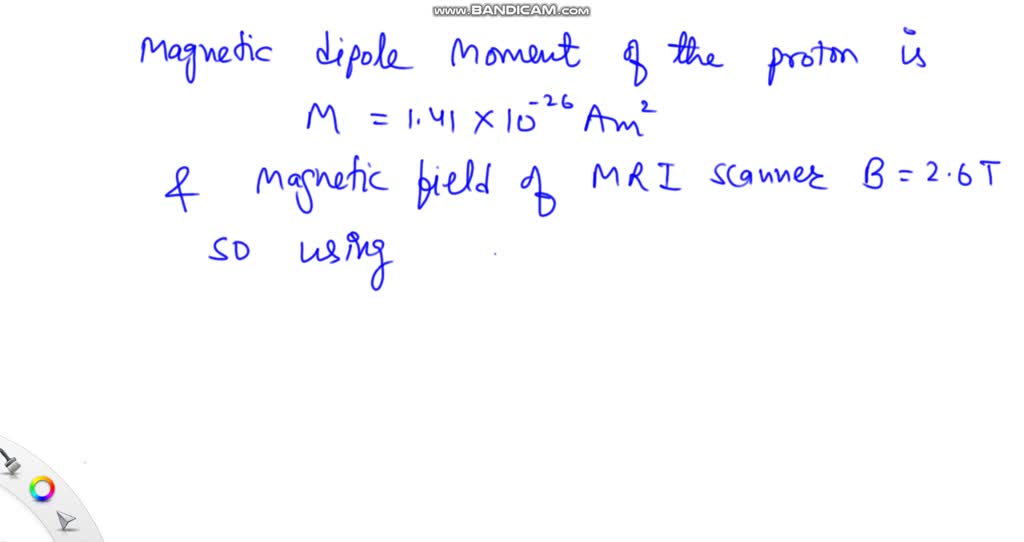 www.BANDICAM.com
Magnetic dipole moment of the proton is
M = 1.41 × 10⁻²⁶ Am²
& magnetic field of MRI scanner B = 2.6 T
so using